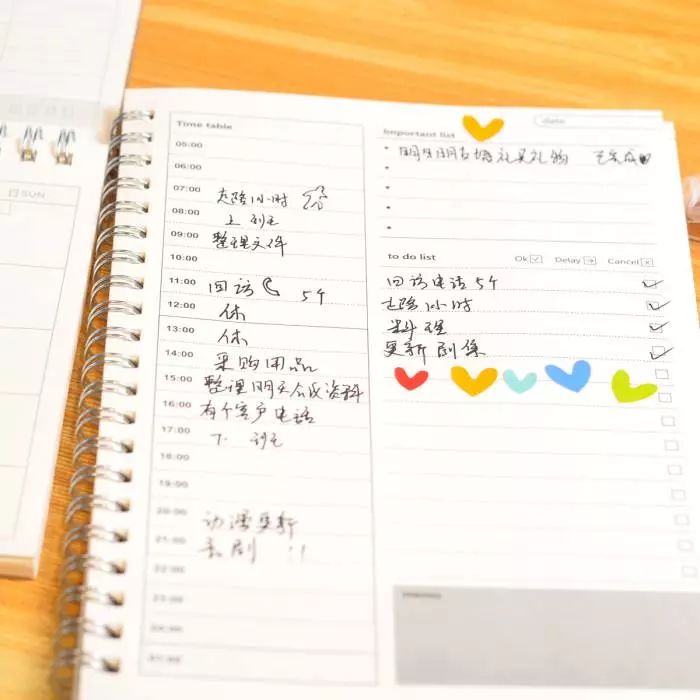 SUN
Time table
05:00
06:00
07:00 走路1小时
08:00 上班
09:00 整理文件
10:00
11:00 回访 5个
12:00 休
13:00 休
14:00 采购用品
15:00 整理明天会议资料
16:00 有个客户电话
17:00 下班
18:00
19:00
20:00 动漫更新
21:00 追剧 !!
22:00
23:00
24:00
date
Important list
明天朋友婚礼买礼物 已完成
to do list Ok Delay Cancel
回访电话5个
走路1小时
料理
更新剧集